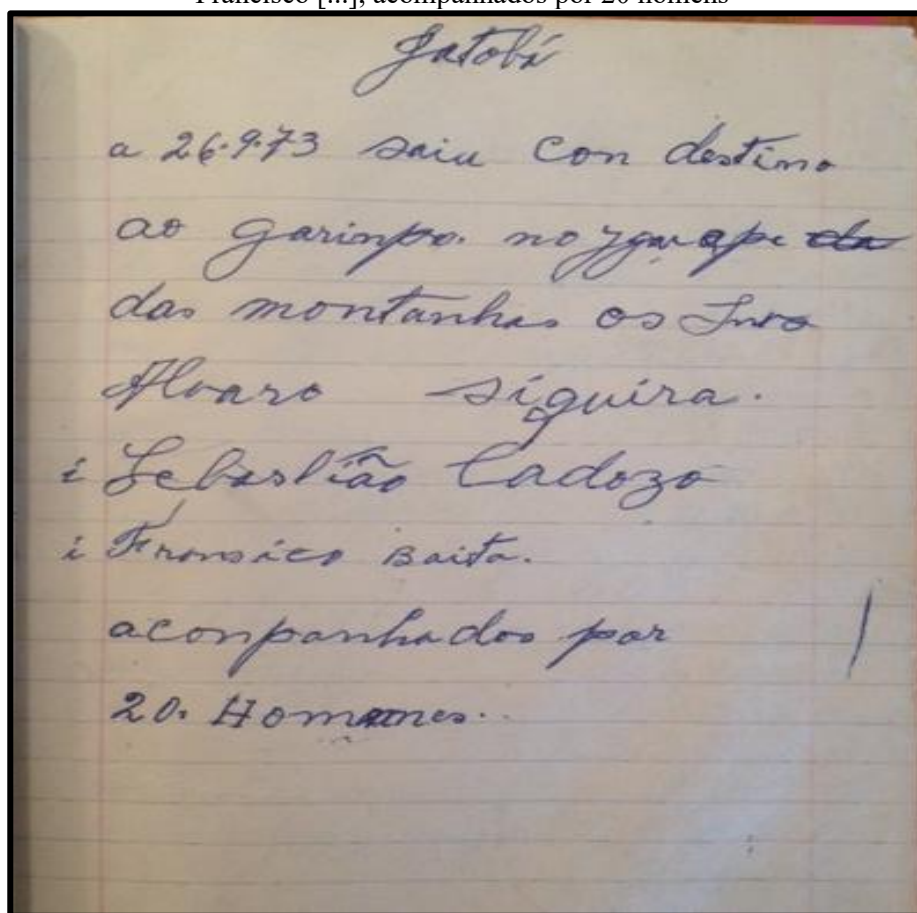 Francisco [...], acompanhados por 20 homens
Jatobá
a 26.9.73 saiu con destino
ao garinpo. no ygarape
das montanhas os Snrs
Alvaro siguira.
i Sebastião Cadozo
i Fransico Baita.
aconpanhados por
20. Homens..